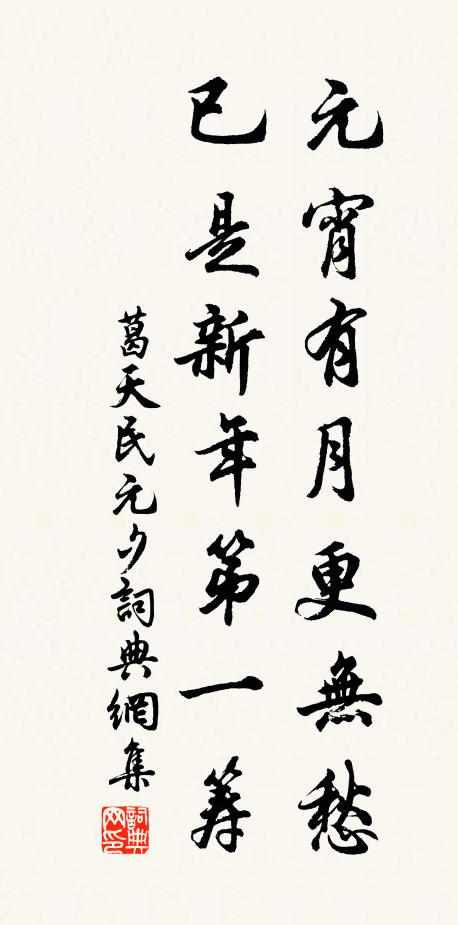 元宵有月更無愁
已是新年第一籌
葛天民元夕詞典網集
詞典網印